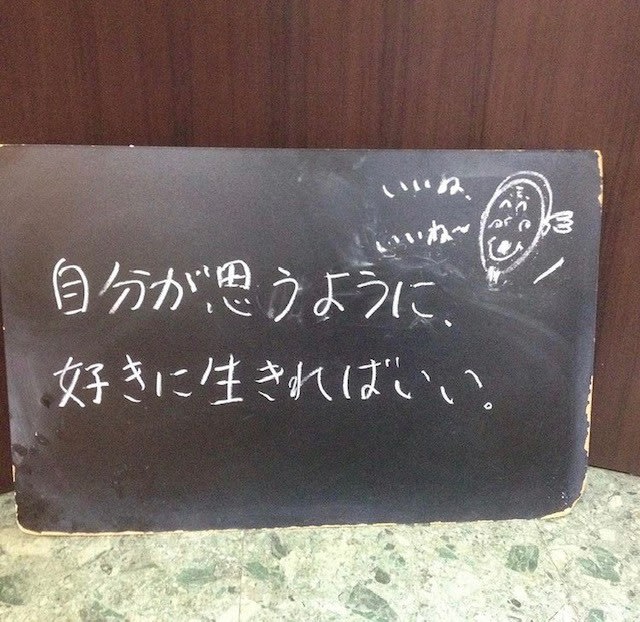 いいね、
いいね〜
自分が思うように、
好きに生きればいい。